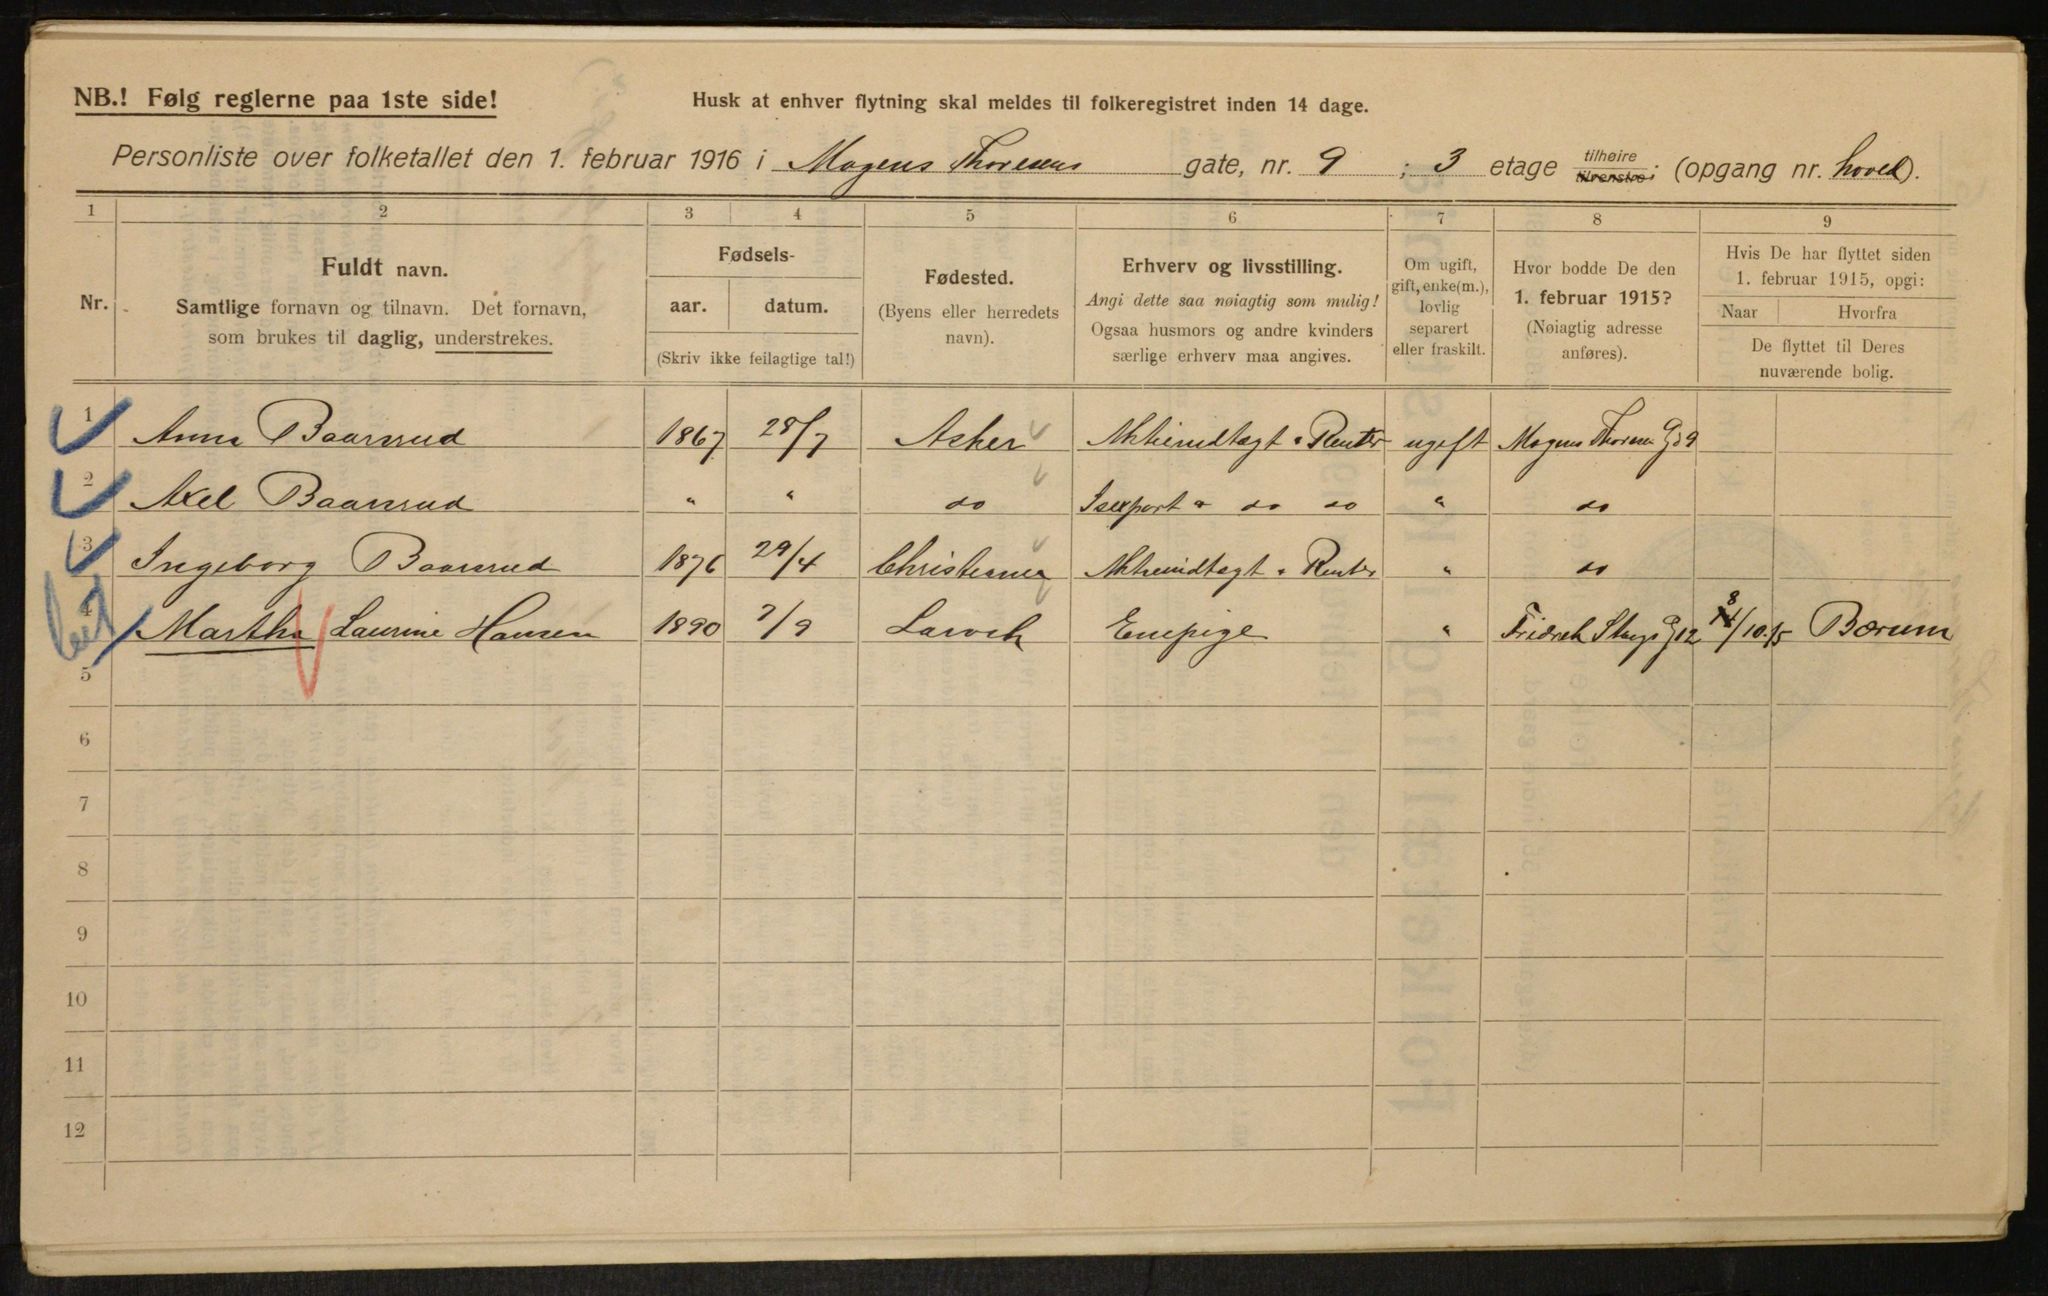 NB.! Følg reglerne paa 1ste side!
Husk at enhver flytning skal meldes til folkeregistret inden 14 dage.
Personliste over folketallet den 1. februar 1916 i Mogens Thoresens gate, nr. 9 ; 3 etage tilhøire tilvenstre; (opgang nr. hoved).
1 2 3 4 5 6 7 8 9
Nr.
Fuldt navn.
Samtlige fornavn og tilnavn. Det fornavn,
som brukes til daglig, understrekes.
Fødsels-
aar. datum.
(Skriv ikke feilagtige tal!)
Fødested.
(Byens eller herredets
navn).
Erhverv og livsstilling.
Angi dette saa nøiagtig som mulig!
Ogsaa husmors og andre kvinders
særlige erhverv maa angives.
Om ugift,
gift, enke(m.),
lovlig
separert
eller fraskilt.
Hvor bodde De den
1. februar 1915?
(Nøiagtig adresse
anføres).
Hvis De har flyttet siden
1. februar 1915, opgi:
Naar Hvorfra
De flyttet til Deres
nuværende bolig.
1 Anna Baarsrud 1867 28/7 Asker Aktieindtægt o Renter ugift Mogens Thoresens Gd 9
2 Axel Baarsrud " " do Isexport o do do " do
3 Ingeborg Baarsrud 1876 29/4 Christiania Aktieindtægt o Renter " do
4 Martha Laurine Hansen 1890 7/9 Larvik Enepige " 8/10.15 Bærum
5
6
7
8
9
10
11
12